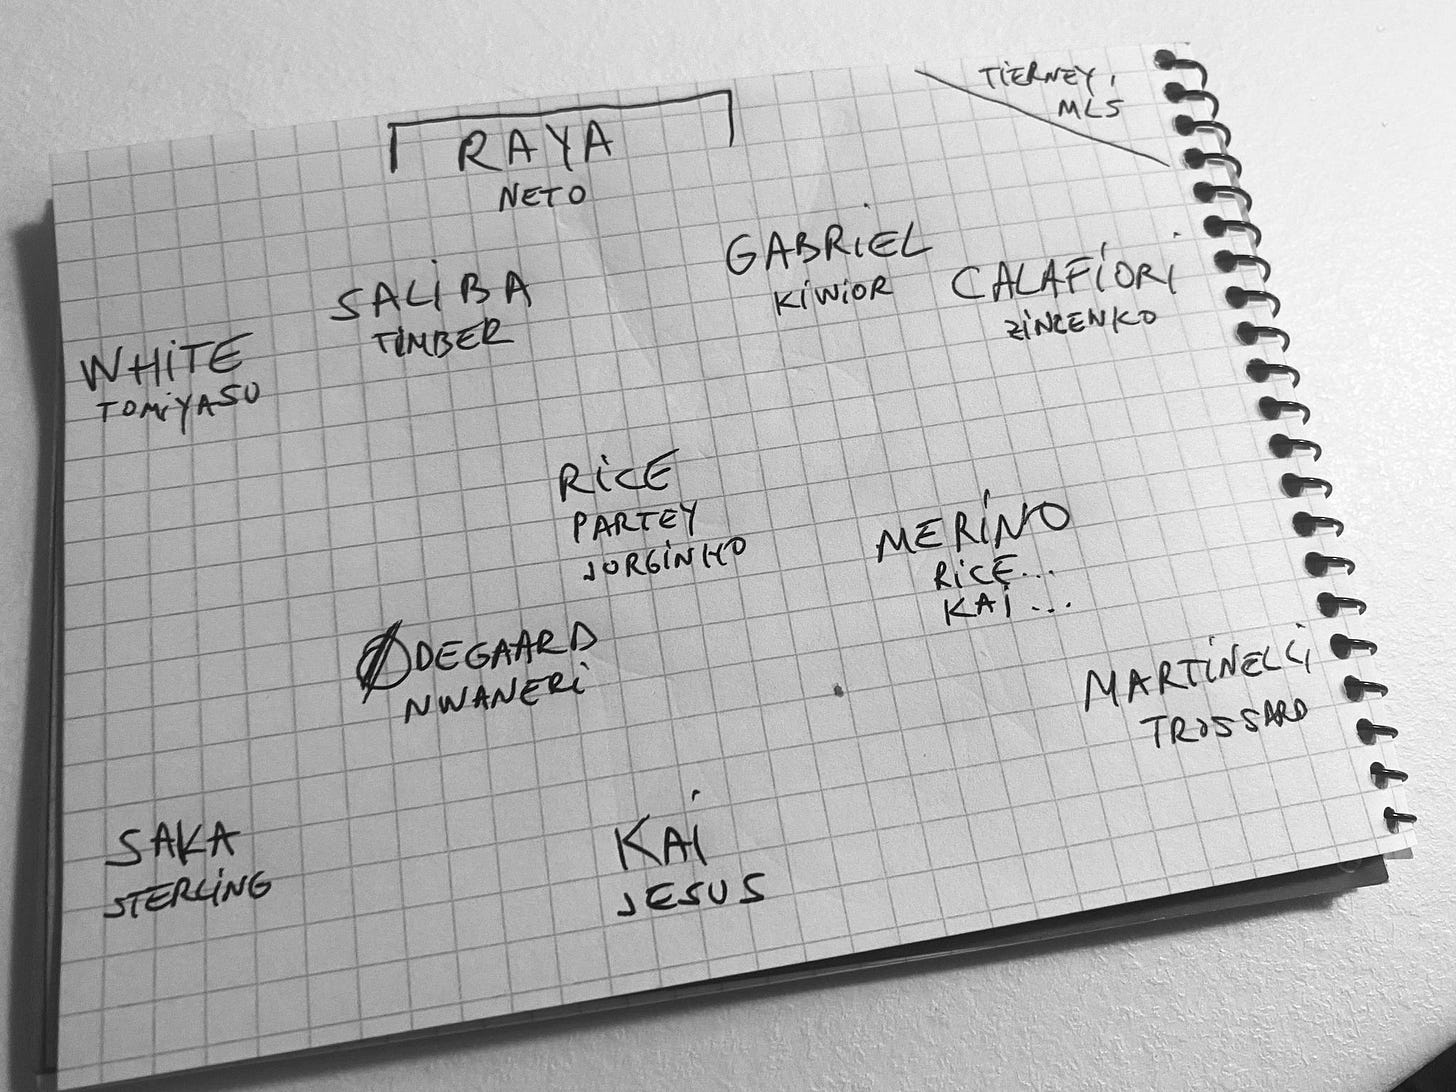 TIERNEY,
MLS
RAYA
NETO
GABRIEL
KIWIOR
CALAFIORI
ZINCENKO
SALIBA
TIMBER
WHITE
TOMIYASU
RICE
PARTEY
JORGINHO
MERINO
RICE...
KAI...
ØDEGAARD
NWANERI
MARTINELLI
TROSSARD
SAKA
STERLING
KAI
JESUS